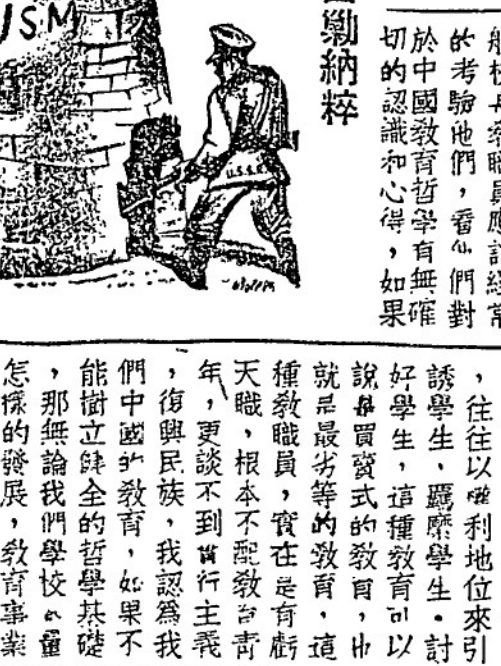 校長教職員應該經常
的考驗他們，看他們對
於中國教育哲學有無確
切的認識和心得，如果
勦納粹
USM
U.S.S.R.
，往往以權利地位來引
誘學生，羈縻學生。討
好學生，這種教育可以
說是買賣式的教育，也
就是最劣等的教育，這
種教職員，實在是有虧
天職，根本不配教育青
年，更談不到實行主義
，復興民族，我認爲我
們中國的教育，如果不
能樹立健全的哲學基礎
，那無論我們學校的量
怎樣的發展，教育事業